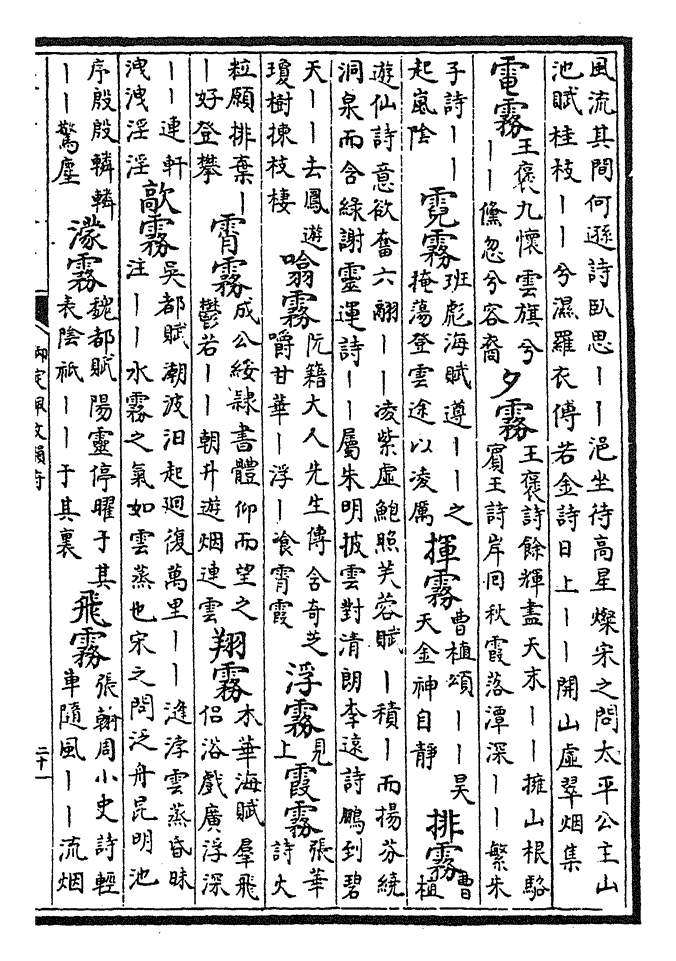 風流其間何遜詩臥思丨丨浥坐待高星燦宋之問太平公主山
池賦桂枝丨丨兮濕羅衣傅若金詩日上丨丨開山虛翠烟集
電霧
王褒九懷雲旗兮
丨丨儵忽兮容裔
夕霧
王褒詩餘輝盡天末丨丨擁山根駱
賓王詩岸囘秋霞落潭深丨丨繁朱
子詩丨丨
起嵐陰
霓霧
班彪海賦遵丨丨之
掩蕩登雲途以凌厲
揮霧
曹植頌丨丨昊
天金神自靜
排霧
曹
植
遊仙詩意欲奮六翮丨丨凌紫虛鮑照芙蓉賦丨積丨而揚芬繞
洞泉而含綠謝靈運詩丨丨屬朱明披雲對清朗李遠詩鵬到碧
天丨丨去鳳遊
瓊樹揀枝棲
噏霧
阮籍大人先生傳含奇芝
嚼甘華丨浮丨飡霄霞
浮霧
見
上
霞霧
張華
詩大
粒願排棄丨
丨好登攀
霄霧
成公綏隷書體仰而望之
鬱若丨丨朝升遊烟連雲
翔霧
木華海賦羣飛
侶浴戲廣浮深
丨丨連軒
洩洩淫淫
歊霧
吳都賦潮波汨起廻復萬里丨丨漨浡雲蒸昏昧
注丨丨水霧之氣如雲蒸也宋之問泛舟昆明池
序殷殷轔轔
丨丨驚塵
濛霧
魏都賦陽靈停曜于其
表陰祇丨丨于其裏
飛霧
張翰周小史詩輕
車隨風丨丨流烟
御定佩文韻府
二十一